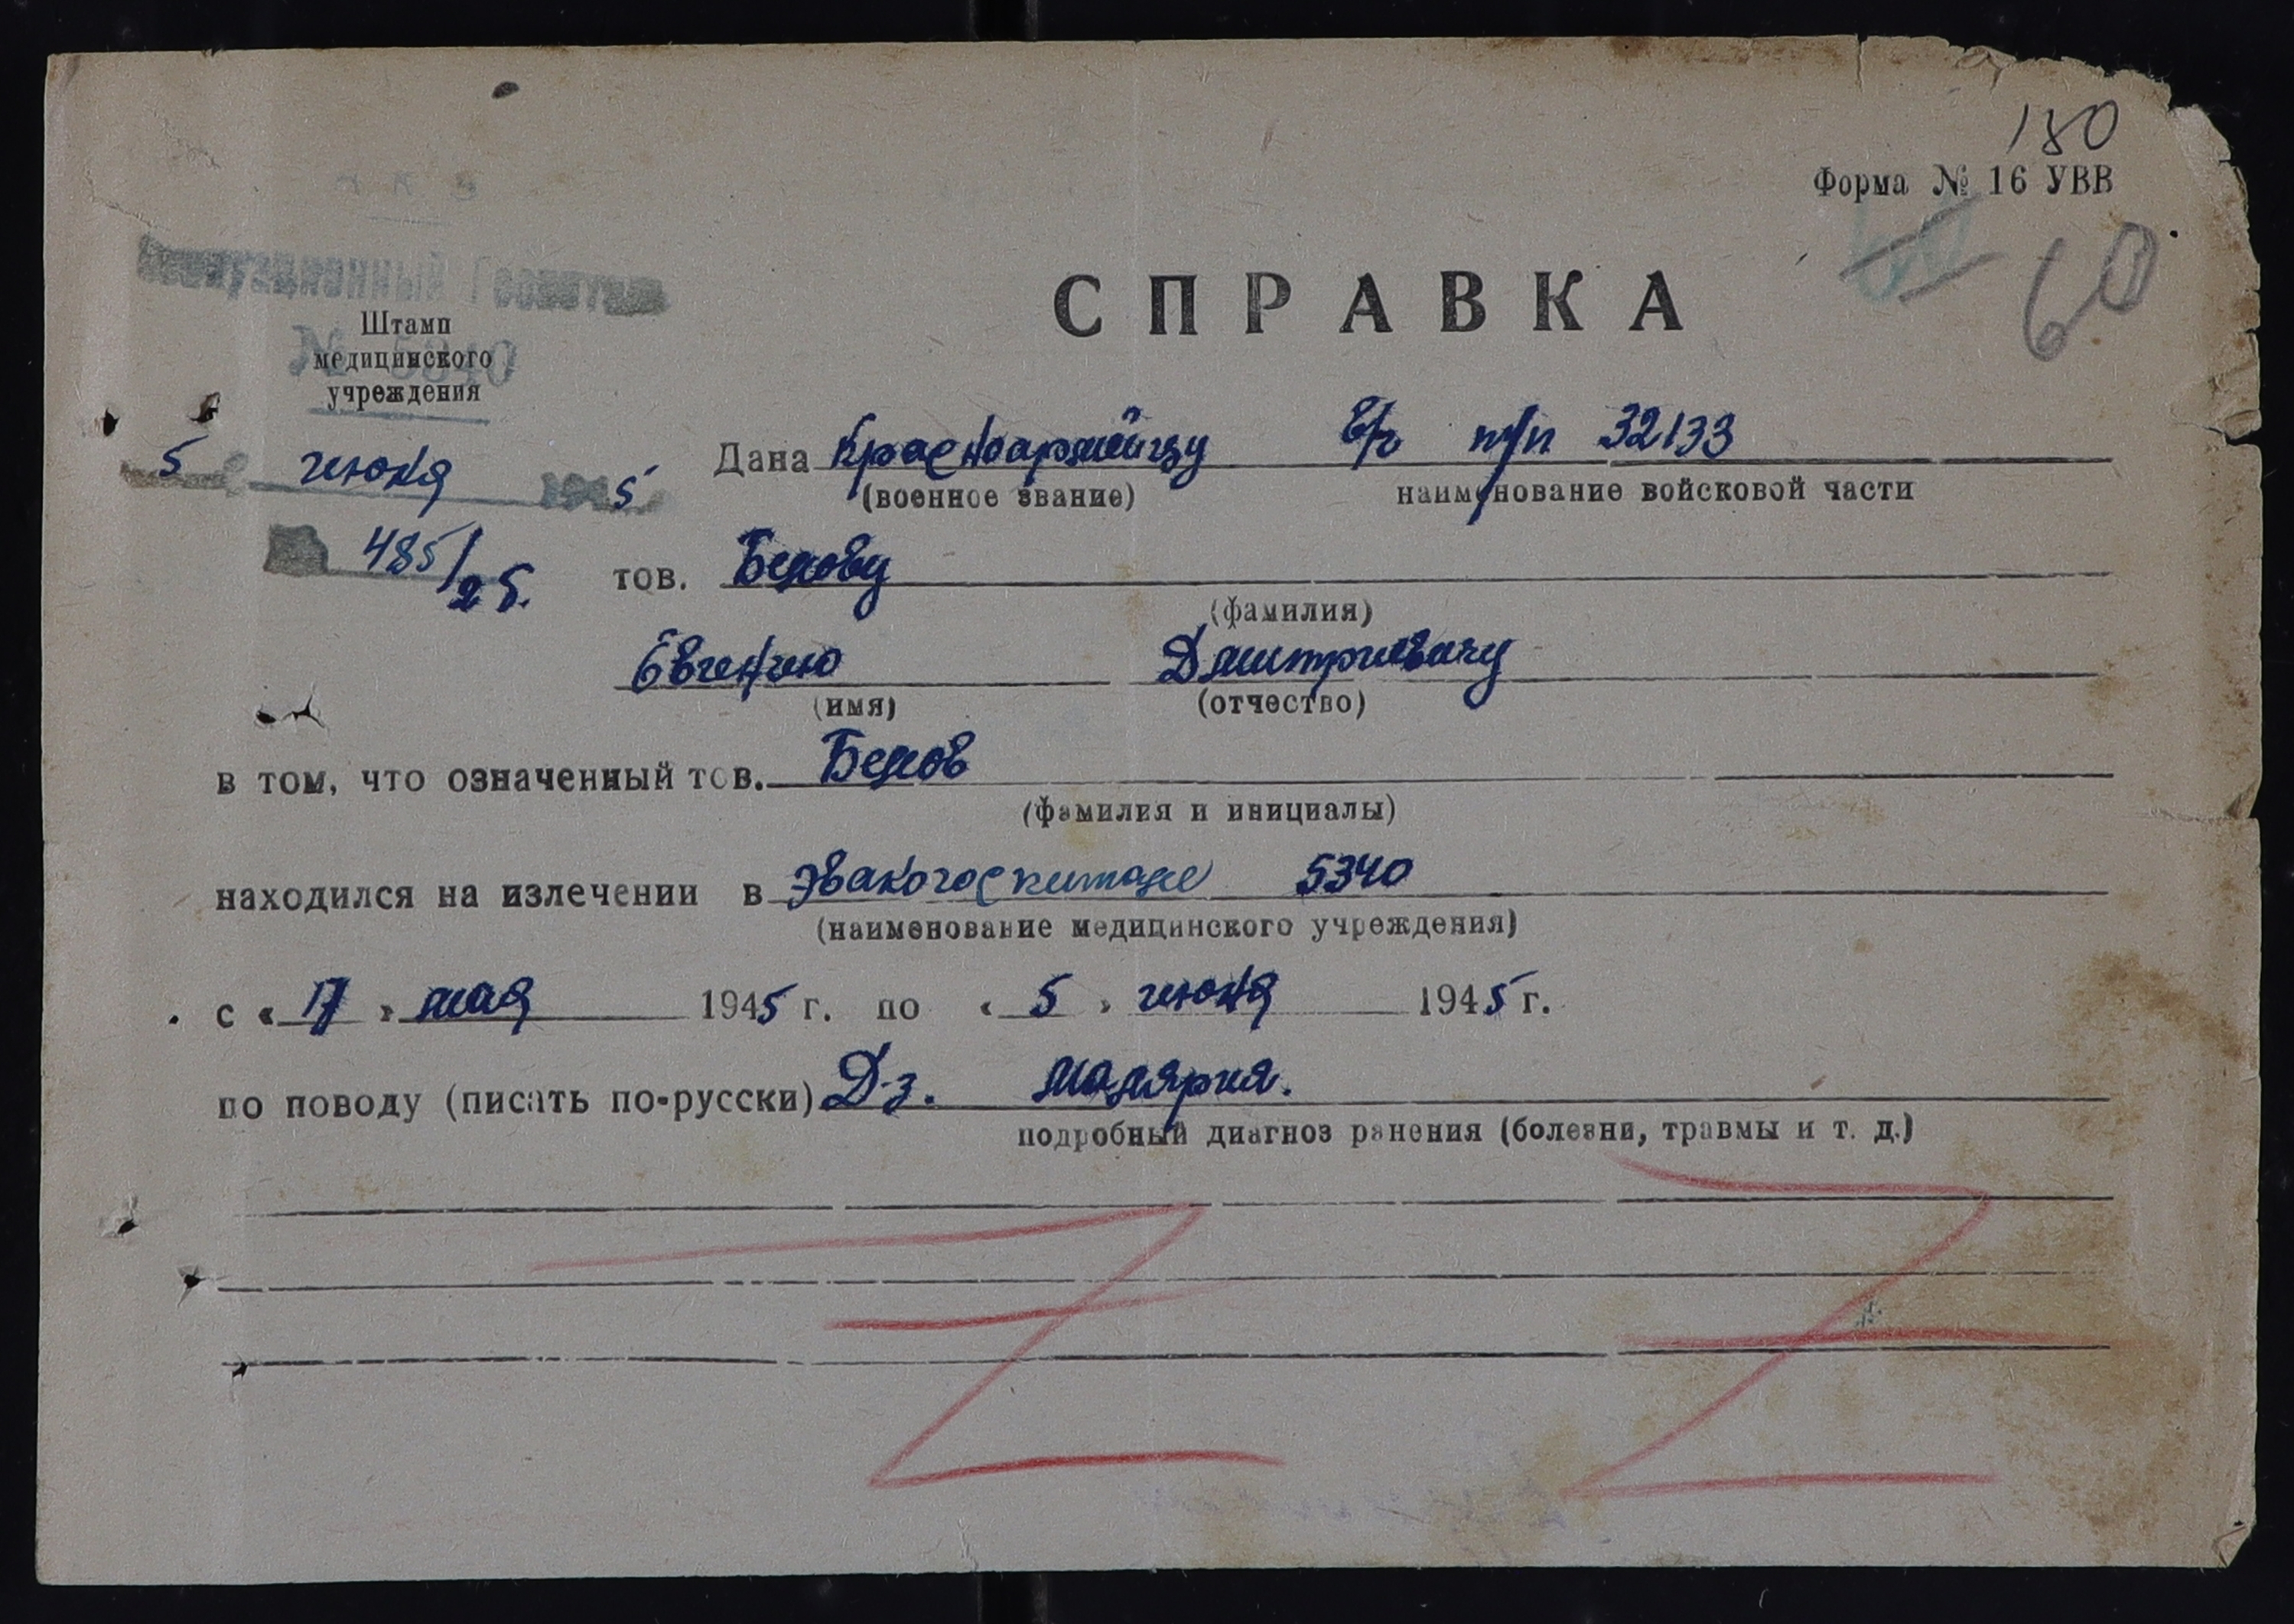 180
Форма № 16 УВВ
60
60
Эвакуационный Госпиталь
№ 5340
СПРАВКА
Штамп
медицинского
учреждения
5 июня 1945
Дана Красноармейцу в/ч п/п 32133
(военное звание) наименование войсковой части
485/25.
тов. Белову
(фамилия)
Евгению Дмитриевичу
(имя) (отчество)
в том, что означенный тов. Белов
(фамилия и инициалы)
находился на излечении в эвакогоспитале 5340
(наименование медицинского учреждения)
с « 17 » мая 1945 г. по « 5 » июня 1945 г.
по поводу (писать по-русски) Дз. малярия.
подробный диагноз ранения (болезни, травмы и т. д.)